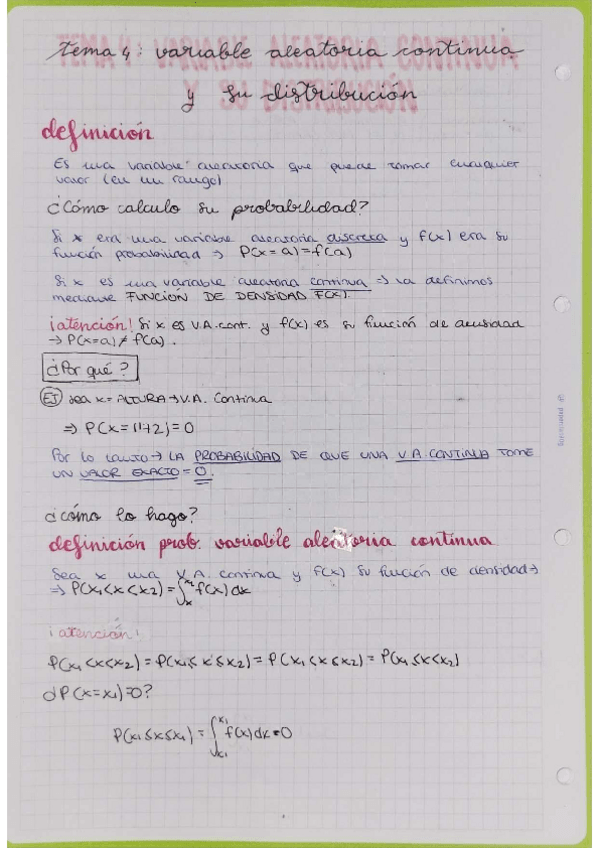 Tema 4: variable aleatoria continua
y su distribución
definición
Es una variable aleatoria que puede tomar cualquier
valor (en un rango)
¿Cómo calculo su probabilidad?
Si x era una variable aleatoria discreta y f(x) era su
función probabilidad ⇒ P(x=a)=f(a)
Si x es una variable aleatoria continua ⇒ la definimos
mediante FUNCION DE DENSIDAD F(X).
¡atención! Si x es V.A. cont. y f(x) es su función de densidad
→ P(x=a) ≠ f(a).
¿Por qué?
EJ sea x = ALTURA → V.A. Continua
⇒ P(x = 1'72) = 0
Por lo tanto → LA PROBABILIDAD DE QUE UNA V.A. CONTINUA TOME
UN VALOR EXACTO = 0.
¿cómo lo hago?
definición prob. variable aleatoria continua
Sea x una V.A. continua y f(x) su función de densidad →
⇒ P(x₁<x<x₂) = ∫ f(x) dx
¡atención!
P(x₁<x<x₂) = P(x₁≤x≤x₂) = P(x₁<x≤x₂) = P(x₁≤x<x₂)
¿P(x=x₁)=0?
P(x₁≤x≤x₁) = ∫ₓ₁ˣ¹ f(x) dx = 0